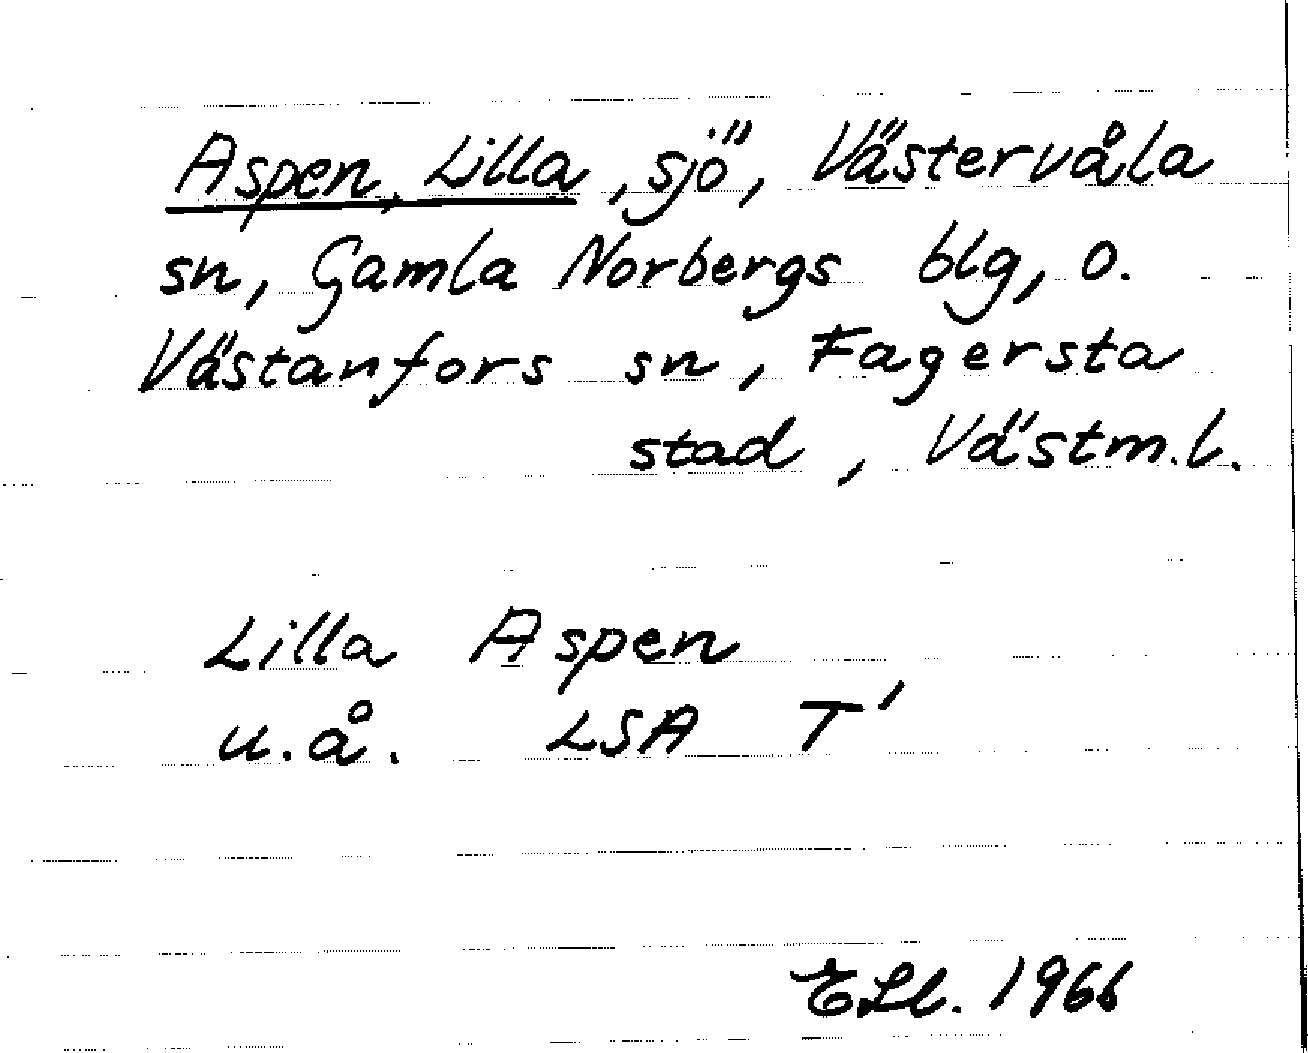 Aspen, Lilla, sjö, Västervåla
sn, Gamla Norbergs blg, o.
Västanfors sn, Fagersta
stad, Västm.l.
Lilla Aspen
u.å. LSA T'
1966